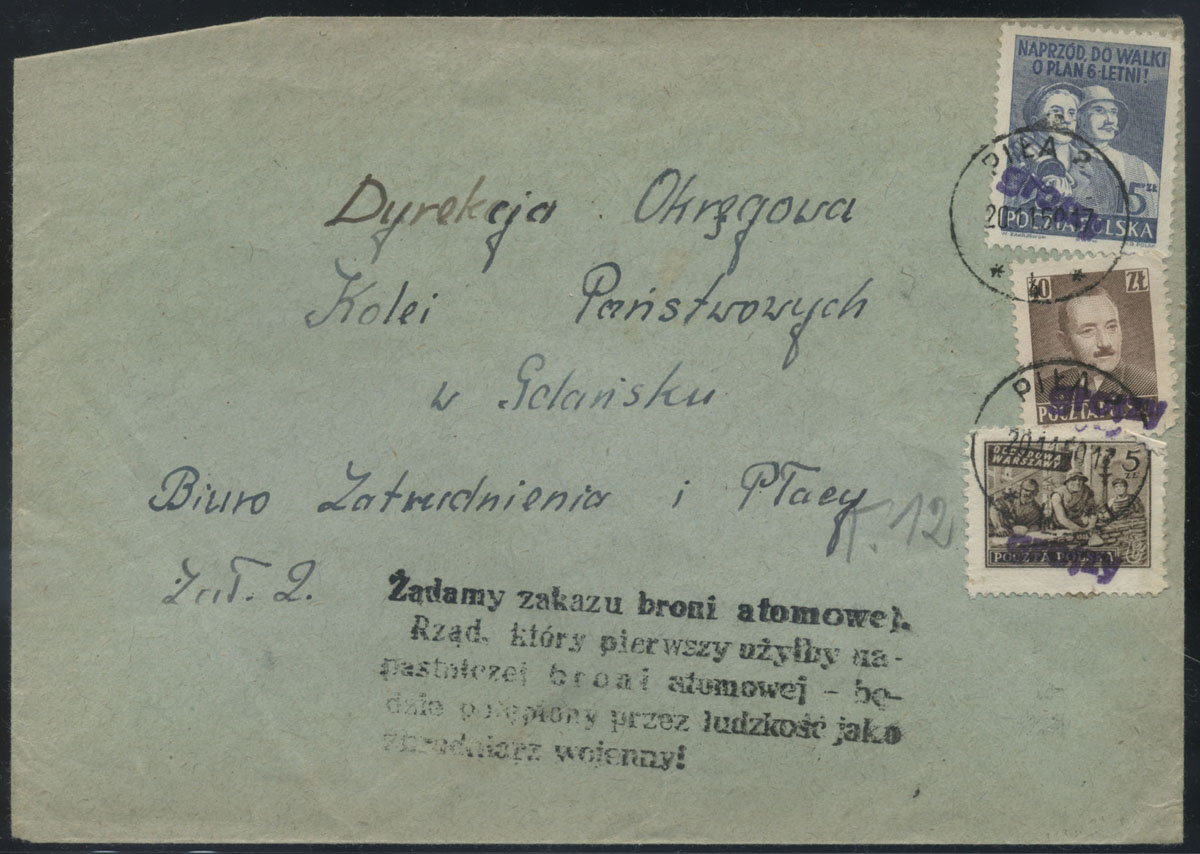 NAPRZÓD, DO WALKI
O PLAN 6-LETNI!
PIŁA 2
groszy
5 ZŁ
POCZTA POLSKA
Dyrekcja Okręgowa
Kolei Państwowych
w Gdańsku
ZŁ
PIŁA
groszy
POCZTA
20.11.50.17
ODBUDOWA
WARSZAWY
5 ZŁ
POCZTA POLSKA
groszy
Biuro Zatrudnienia i Płacy
12
Zał. 2.
Żądamy zakazu broni atomowej.
Rząd, który pierwszy użyłby na-
pastniczej broni atomowej – bę-
dzie potępiony przez ludzkość jako
zbrodniarz wojenny!